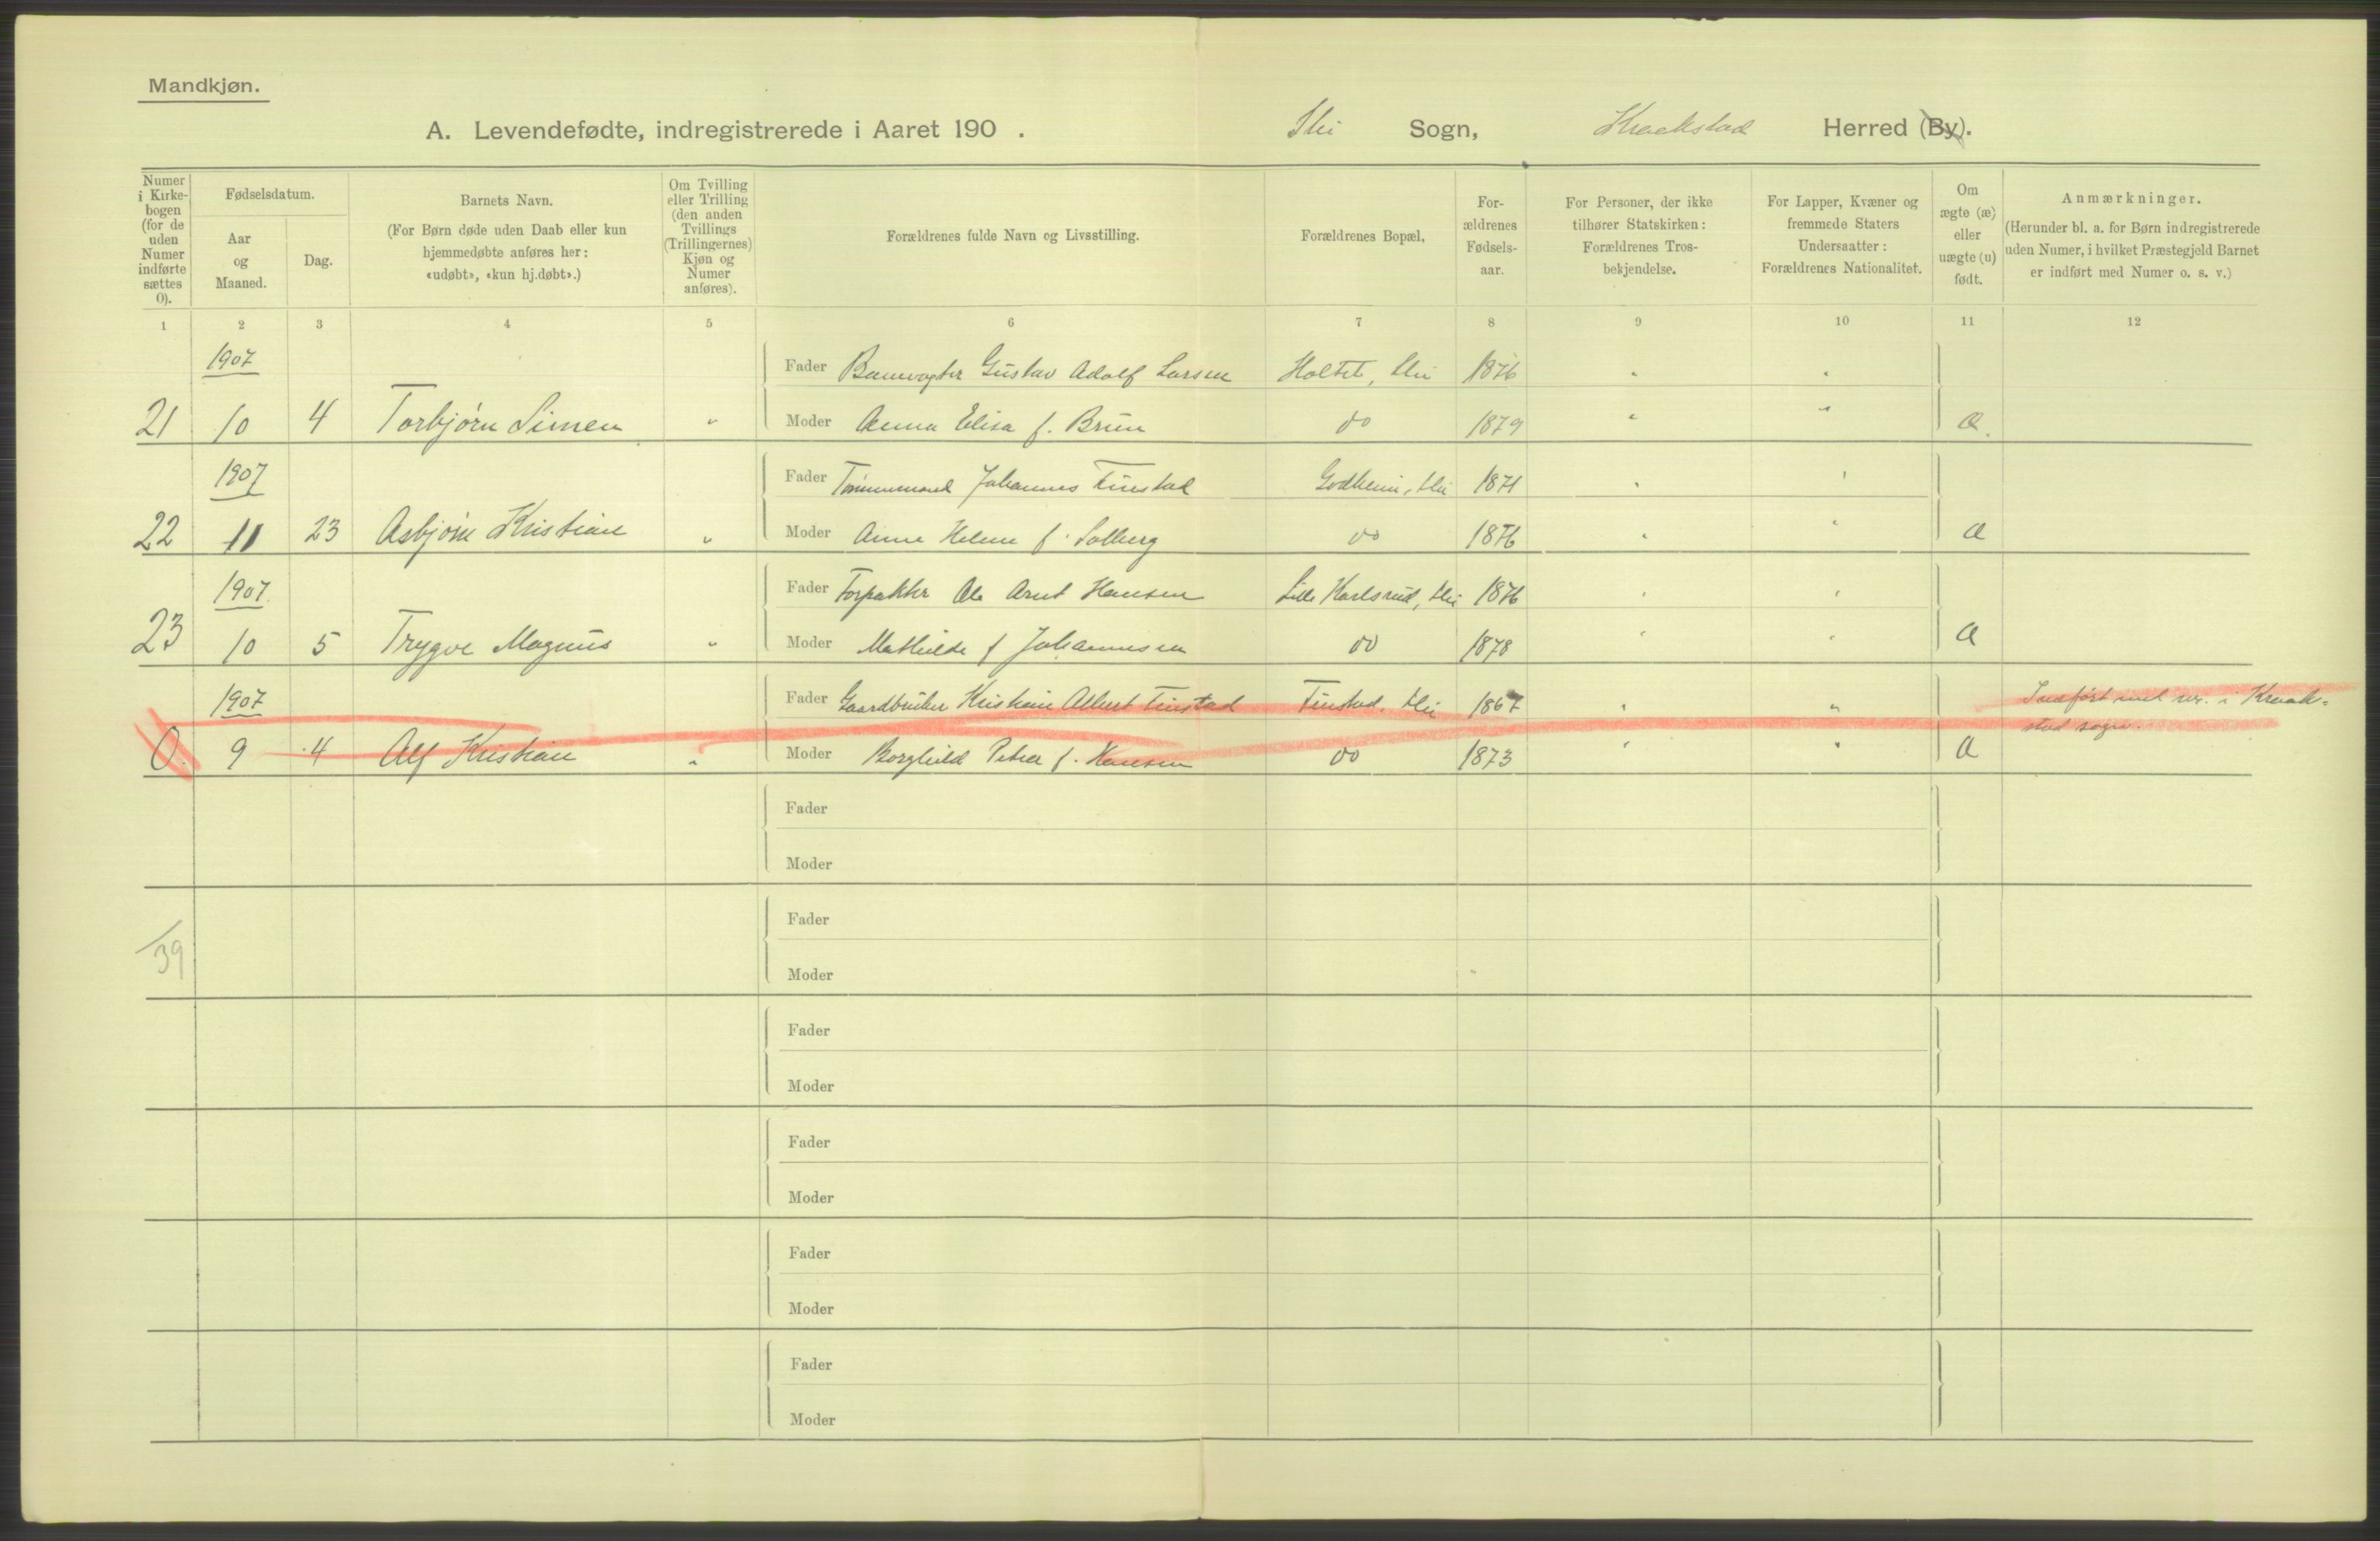 Mandkjøn.
A. Levendefødte, indregistrerede i Aaret 190 . Ski Sogn, Kraakstad Herred (By).
Numer i Kirkebogen (for de uden Numer indførte sættes 0).
Fødselsdatum.
Aar og Maaned.
Dag.
Barnets Navn.
(For Børn døde uden Daab eller kun
hjemmedøbte anføres her:
«udøbt», «kun hj.døbt».)
Om Tvilling
eller Trilling
(den anden
Tvillings
(Trillingernes)
Kjøn og
Numer
anføres).
Forældrenes fulde Navn og Livsstilling.
Forældrenes Bopæl,
For-
ældrenes
Fødsels-
aar.
For Personer, der ikke
tilhører Statskirken:
Forældrenes Tros-
bekjendelse.
For Lapper, Kvæner og
fremmede Staters
Undersaatter:
Forældrenes Nationalitet.
Om
ægte (æ)
eller
uægte (u)
født.
Anmærkninger.
(Herunder bl. a. for Børn indregistrerede
uden Numer, i hvilket Præstegjeld Barnet
er indført med Numer o. s. v.)
1 2 3 4 5 6 7 8 9 10 11 12
1907 Fader Banevogter Gustav Adolf Larsen Holtet, Ski 1876 " "
21 10 4 Torbjørn Simen " Moder Anna Elisa f. Brun do 1879 " " æ.
1907 Fader Tømmermand Johannes Finstad Godheim, Ski 1871 " "
22 11 23 Asbjørn Kristian " Moder Anne Helene f. Solberg do 1876 " " æ
1907 Fader Forpakter Ole Arnt Hansen Lille Karlsrud, Ski 1876 " "
23 10 5 Trygve Magnus " Moder Mathilde f Johannesen do 1878 " " æ
1907 Fader Gaardbruker Kristian Albert Finstad Finstad, Ski 1867 " " Indført med nr. i Kraak-
stad sogn.
0. 9 4 Alf Kristian " Moder Borghild Petra f. Hansen do 1873 " " æ
Fader
Moder
39 Fader
Moder
Fader
Moder
Fader
Moder
Fader
Moder
Fader
Moder